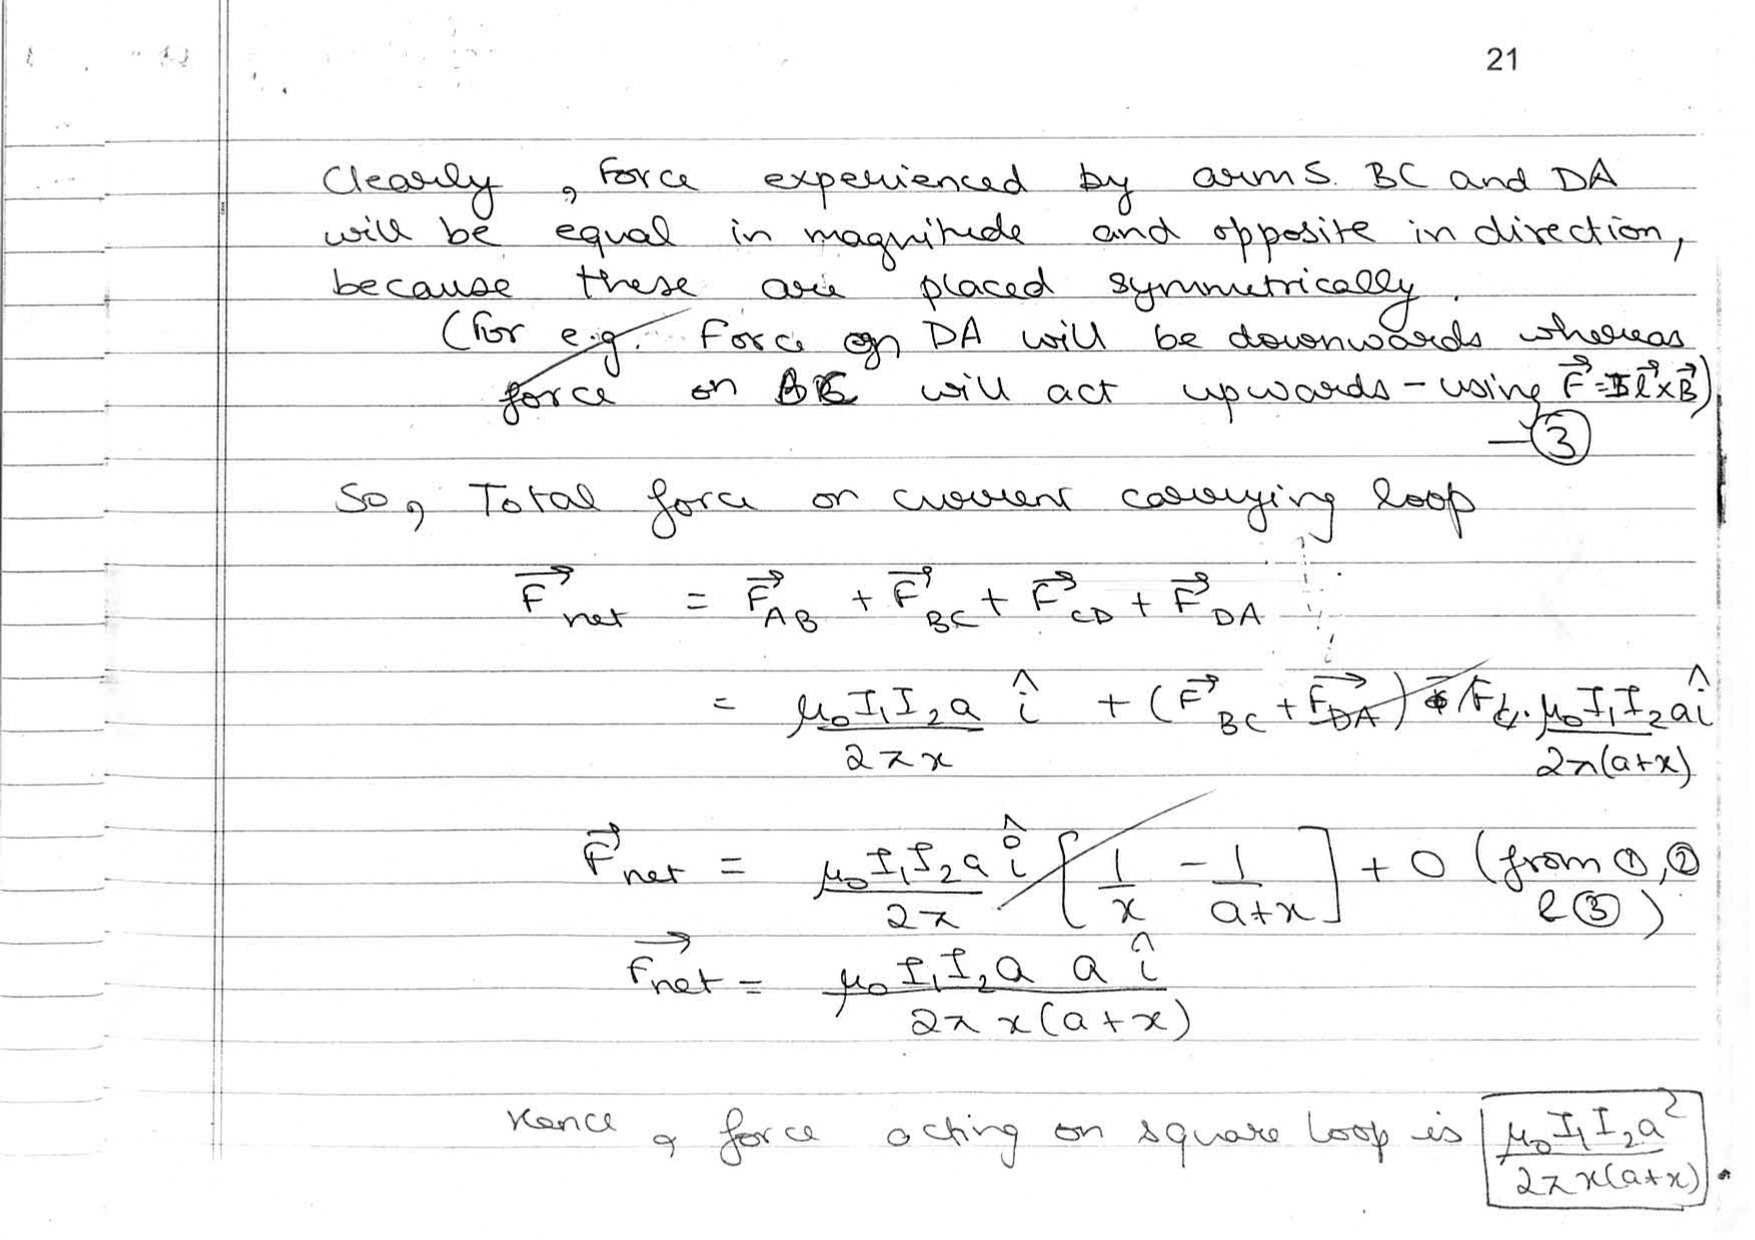 21
Clearly, Force experienced by arms. BC and DA
will be equal in magnitude and opposite in direction,
because these are placed symmetrically.
(For e.g. Force on DA will be downwards whereas
force on BC will act upwards - using F⃗ = I l⃗ × B⃗)
— ③
So, Total force on current carrying loop
F⃗net = F⃗AB + F⃗BC + F⃗CD + F⃗DA
= μ₀I₁I₂a/2πx î + (F⃗BC + F⃗DA) μ₀I₁I₂aî/2π(a+x)
F⃗net = μ₀I₁I₂a/2π î [1/x - 1/(a+x)] + 0 (from ①, ②
& ③)
F⃗net = μ₀I₁I₂a a î/2πx(a+x)
Hence, force acting on square loop is μ₀I₁I₂a²/2πx(a+x).